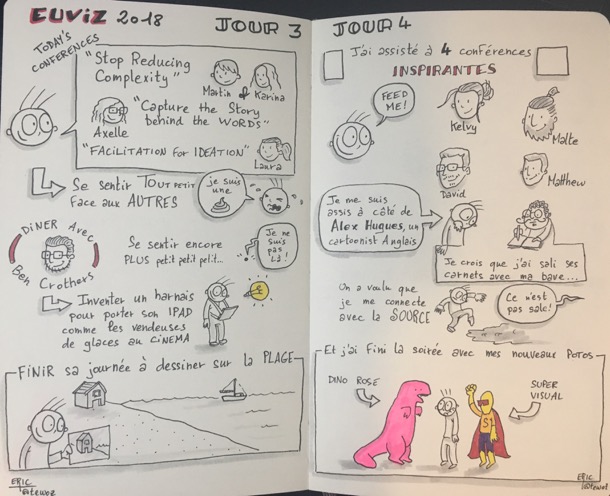 EUViZ 2018
JOUR 3
TODAY'S
CONFERENCES
"Stop Reducing
Complexity"
Martin & Karina
"Capture the Story
behind the WORDS"
Axelle
"FACILITATION for IDEATION"
Laura
Se sentir TOUT PETIT
face aux AUTRES
je suis
une
DîNER Avec
Ben Crothers
Se sentir encore
PLUS petit petit petit...
Je ne
suis
pas
là!
Inventer un harnais
pour porter son IPAD
comme les vendeuses
de glaces au CiNEMA
FINIR sa journée à dessiner sur la PLAGE
ERIC
JOUR 4
J'ai assisté à 4 conférences
INSPIRANTES
FEED
ME!
Kelvy
Malte
David
Matthew
Je me suis
assis à côté de
Alex Hugues, un
cartoonist Anglais
Je crois que j'ai sali ses
carnets avec ma bave...
On a voulu que
je me connecte
avec la SOURCE
Ce n'est
pas sale!
Et j'ai fini la soirée avec mes nouveaux Potos
DINO ROSE
SUPER
VISUAL
ERIC